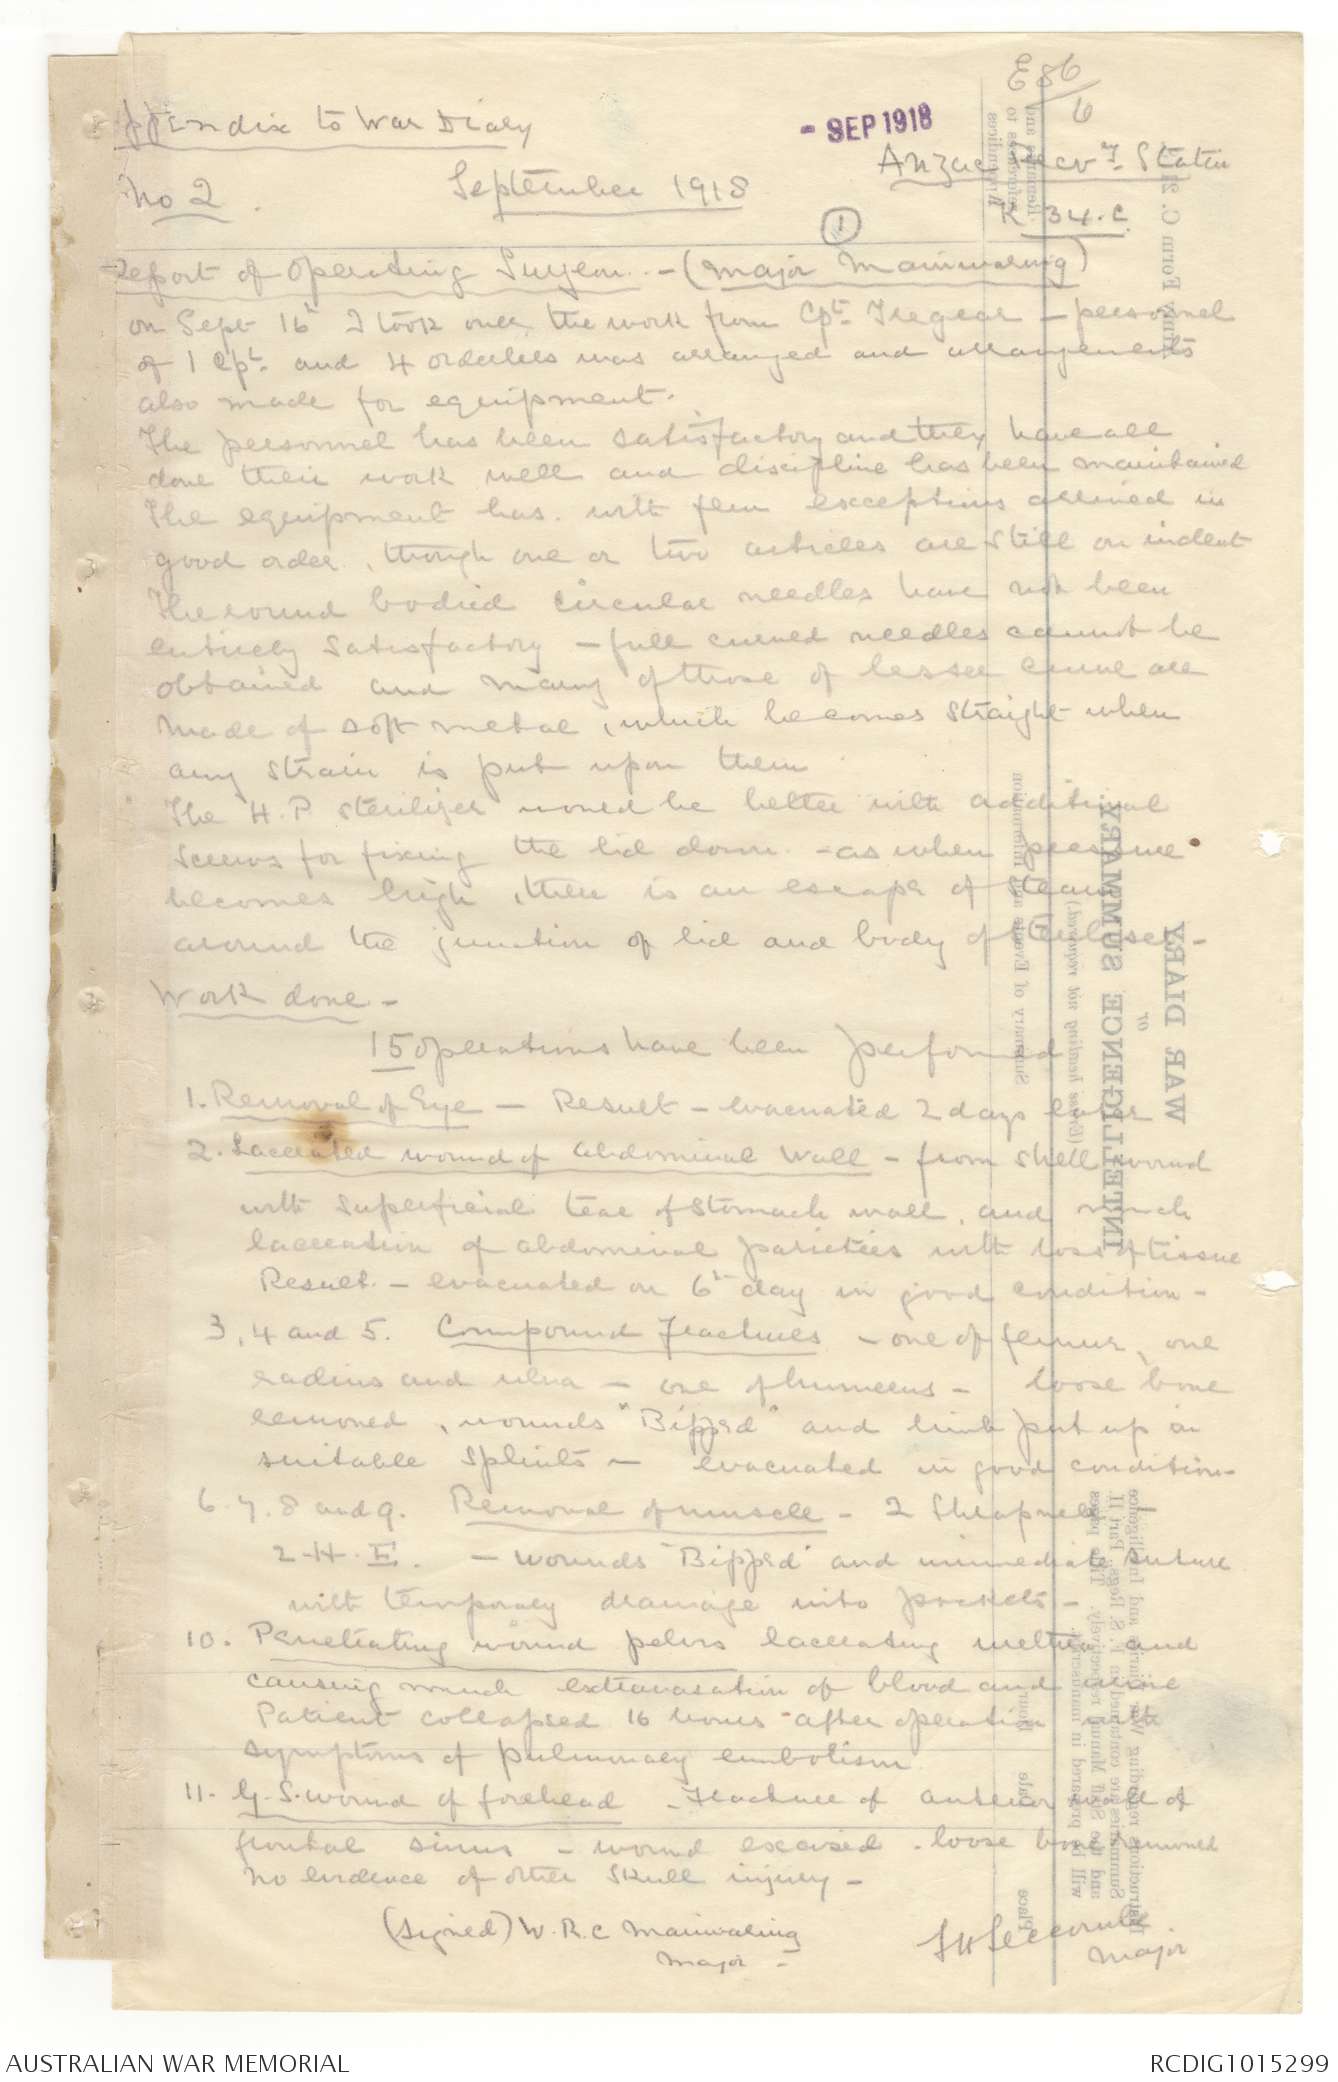 E 86/6
Appendix to War Diary
- SEP 1918
Anzac Recvg Station
No 2.
September 1918
K 34.C
1
Report of Operating Surgeon - (Major Mainwaring)
on Sept 16th I took over the work from Cpt. Tregear - personnel
of 1 Cpl. and 4 orderlies was arranged and arrangements
also made for equipment.
The personnel has been satisfactory and they have all
done their work well and discipline has been maintained
The equipment has with few exceptions arrived in
good order, though one or two articles are still on indent
The round bodied circular needles have not been
entirely satisfactory - full curved needles cannot be
obtained and many of those of lesser curve are
made of soft metal, which becomes straight when
any strain is put upon them
The H.P sterilizer would be better with additional
screws for fixing the lid down - as when pressure
becomes high, there is an escape of steam
around the junction of lid and body of steriliser -
Work done -
15 operations have been performed
1. Removal of Eye - Result - evacuated 2 days later
2. Lacerated wound of abdominal wall - from shell wound
with superficial tear of stomach wall, and much
laceration of abdominal parieties with loss of tissue
Result - evacuated on 6th day in good condition -
3, 4 and 5. Compound fractures - one of femur, one
radius and ulna - one of humerus - loose bone
removed, wounds "Bipped" and limb put up in
suitable splints - evacuated in good condition -
6. 7. 8 and 9. Removal of missile - 2 Shrapnel
2 H.E. - wounds "Bipped" and immediate suture
with temporary drainage into pockets -
10. Penetrating wound pelvis lacerating urethra and
causing much extravasation of blood and urine
Patient collapsed 16 hours after operation with
symptoms of pulmonary embolism
11. G.S. wound of forehead - Fracture of anterior wall of
frontal sinus - wound excised - loose bone removed
No evidence of other skull injury -
(Signed) W. R. C Mainwaring
Major -
Major
Army Form C. 2118.
WAR DIARY
or
INTELLIGENCE SUMMARY.
(Erase heading not required.)
Instructions regarding War Diaries and Intelligence
Summaries are contained in F. S. Regs., Part II.
and the Staff Manual respectively. Title pages
will be prepared in manuscript.
Place
Date
Hour
Summary of Events and Information
Remarks and
references to
Appendices
AUSTRALIAN WAR MEMORIAL
RCDIG1015299